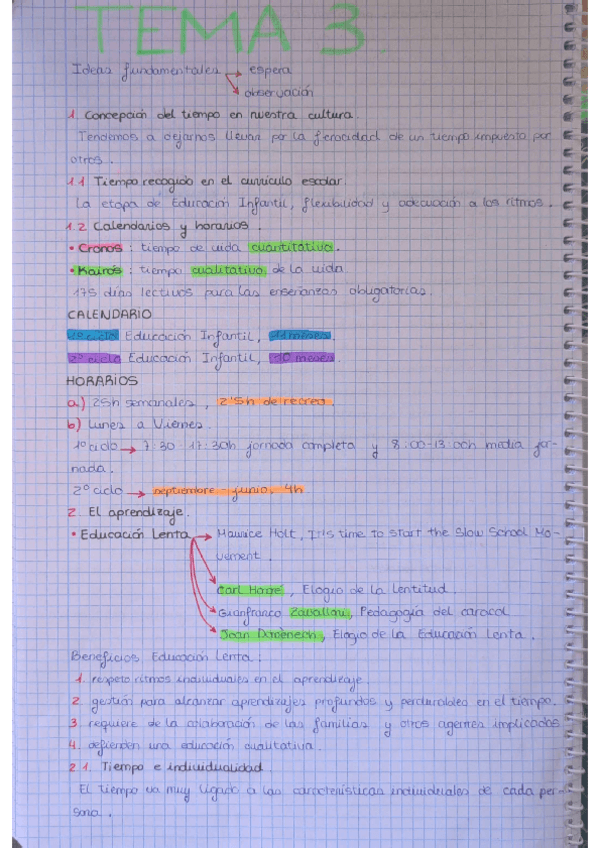 TEMA 3
Ideas fundamentales → espera
→ observación
1. Concepción del tiempo en nuestra cultura.
Tendemos a dejarnos llevar por la ferocidad de un tiempo impuesto por
otros.
1.1 Tiempo recogido en el currículo escolar.
La etapa de Educación Infantil, flexibilidad y adecuación a los ritmos.
1.2 Calendarios y horarios.
• Cronos: tiempo de vida cuantitativo.
• Kairós: tiempo cualitativo de la vida
175 días lectivos para las enseñanzas obligatorias.
CALENDARIO
1º ciclo Educación Infantil, 11 meses.
2º ciclo Educación Infantil, 10 meses.
HORARIOS
a) 25h semanales, 2'5h de recreo.
b) Lunes a Viernes.
1º ciclo → 7:30-17:30h jornada completa y 8:00-13:00h media jor-
nada.
2º ciclo → septiembre - junio, 4h
2. El aprendizaje.
• Educación Lenta → Maurice Holt, It is time to start the Slow School Mo-
vement.
Carl Honoré, Elogio de la Lentitud.
Gianfranco Zavalloni, Pedagogía del caracol
Joan Domènech, Elogio de la Educación Lenta.
Beneficios Educación Lenta:
1. respeto ritmos individuales en el aprendizaje.
2. gestión para alcanzar aprendizajes profundos y perdurables en el tiempo.
3. requiere de la colaboración de las familias y otros agentes implicados
4. defienden una educación cualitativa.
2.1. Tiempo e individualidad
El tiempo va muy ligado a las características individuales de cada per-
sona.